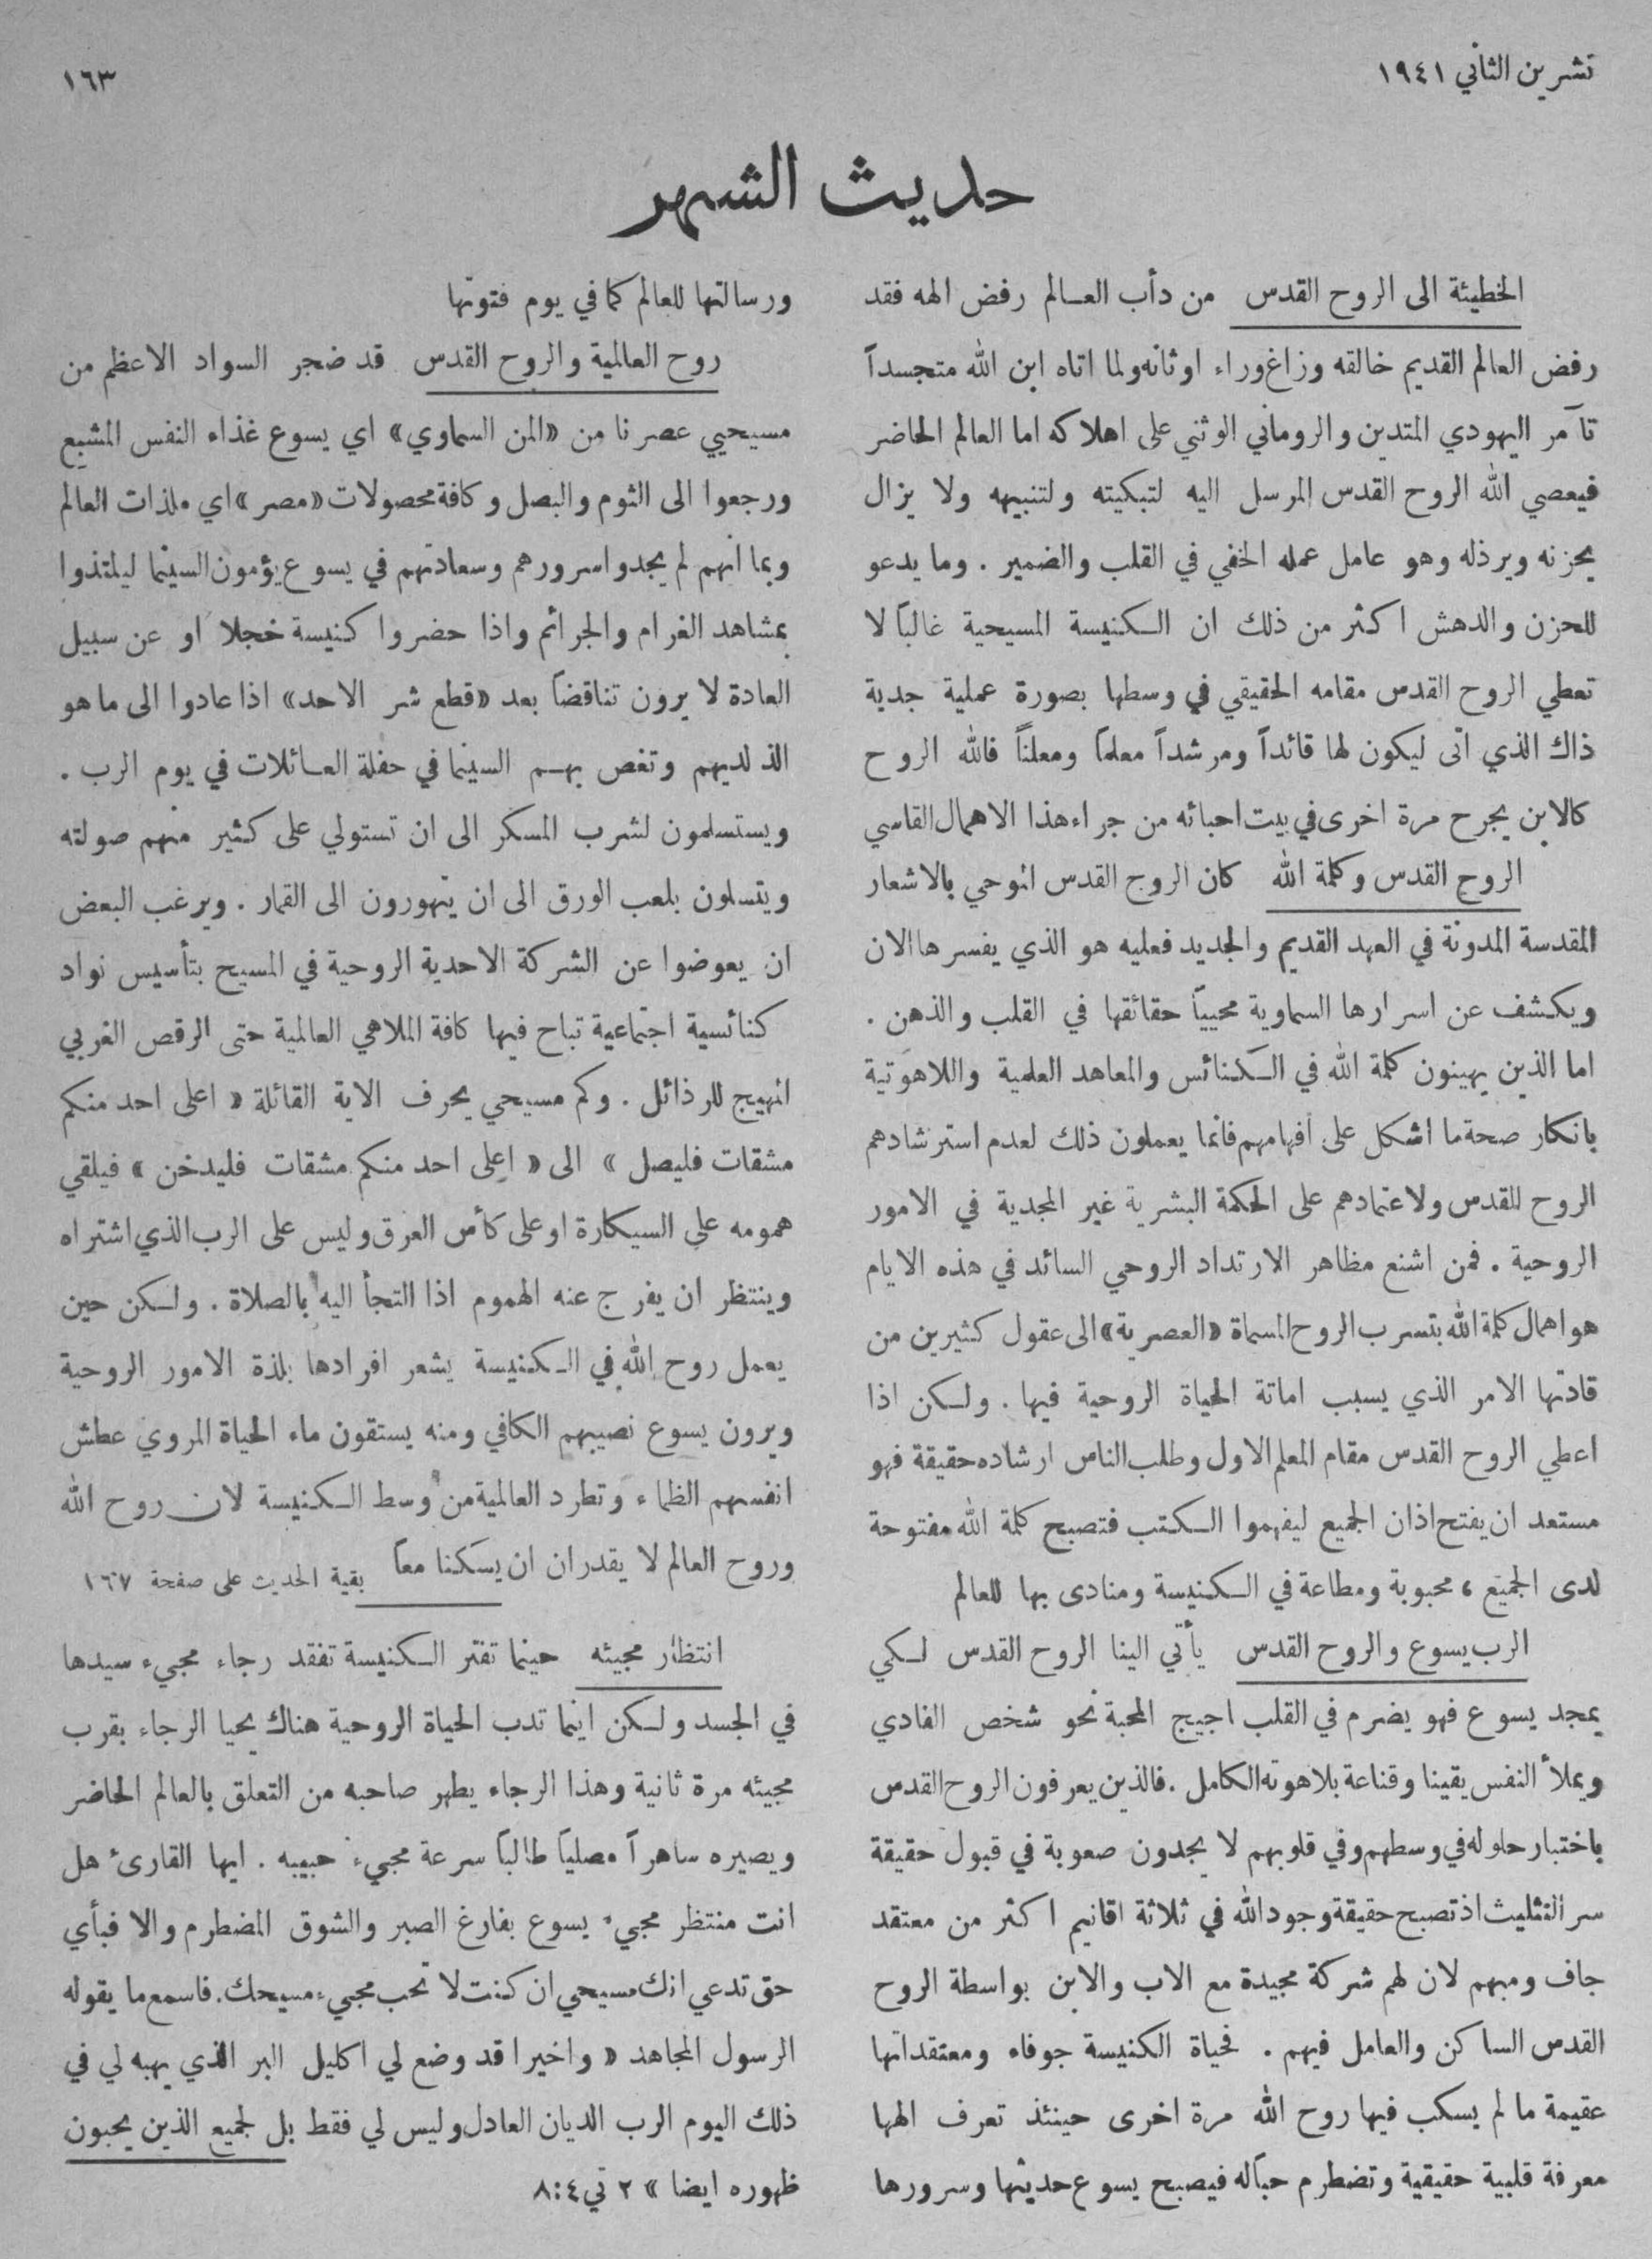 تشرين الثاني ١٩٤١
١٦٣
حديث الشهر
الخطيئة الى الروح القدس من دأب العالم رفض الهه فقد
رفض العالم القديم خالقه وزاغ وراء اوثانه ولما اتاه ابن الله متجسداً
تآمر اليهودي المتدين والروماني الوثني على اهلاكه اما العالم الحاضر
فيعصي الله الروح القدس المرسل اليه لتبكيته ولتنبيهه ولا يزال
يحزنه ويرذله وهو عامل عمله الخفي في القلب والضمير . وما يدعو
للحزن والدهش اكثر من ذلك ان الكنيسة المسيحية غالباً لا
تعطي الروح القدس مقامه الحقيقي في وسطها بصورة عملية جدية
ذاك الذي اتى ليكون لها قائداً ومرشداً معلماً ومعلناً فالله الروح
كالابن يجرح مرة اخرى في بيت احبائه من جراء هذا الاهمال القاسي
الروح القدس وكلمة الله كان الروح القدس الموحي بالاشعار
المقدسة المدونة في العهد القديم والجديد فعليه هو الذي يفسرها الان
ويكشف عن اسرارها السماوية محيياً حقائقها في القلب والذهن .
اما الذين يهينون كلمة الله في الكنائس والمعاهد العلمية واللاهوتية
بانكار صحة ما اشكل على افهامهم فانما يعملون ذلك لعدم استرشادهم
الروح للقدس ولاعتمادهم على الحكمة البشرية غير المجدية في الامور
الروحية . فمن اشنع مظاهر الارتداد الروحي السائد في هذه الايام
هو اهمال كلمة الله بتسرب الروح المسماة «العصرية» الى عقول كثيرين من
قادتها الامر الذي يسبب اماتة الحياة الروحية فيها . ولكن اذا
اعطي الروح القدس مقام المعلم الاول وطلب الناس ارشاده حقيقة فهو
مستعد ان يفتح اذان الجميع ليفهموا الكتب فتصبح كلمة الله مفتوحة
لدى الجميع ، محبوبة ومطاعة في الكنيسة ومنادى بها للعالم
الرب يسوع والروح القدس يأتي الينا الروح القدس لكي
يمجد يسوع فهو يضرم في القلب اجيج المحبة نحو شخص الفادي
ويملأ النفس يقينا وقناعة بلاهوته الكامل . فالذين يعرفون الروح القدس
باختبار حلوله في وسطهم وفي قلوبهم لا يجدون صعوبة في قبول حقيقة
سر التثليث اذ تصبح حقيقة وجود الله في ثلاثة اقانيم اكثر من معتقد
جاف ومبهم لان لهم شركة مجيدة مع الاب والابن بواسطة الروح
القدس الساكن والعامل فيهم . فحياة الكنيسة جوفاء ومعتقداتها
عقيمة ما لم يسكب فيها روح الله مرة اخرى حينئذ تعرف الهها
معرفة قلبية حقيقية وتضطرم حباً له فيصبح يسوع حديثها وسرورها
ورسالتها للعالم كما في يوم فتوتها
روح العالمية والروح القدس قد ضجر السواد الاعظم من
مسيحيي عصرنا من «المن السماوي» اي يسوع غذاء النفس المشبع
ورجعوا الى الثوم والبصل وكافة محصولات «مصر» اي ملذات العالم
وبما انهم لم يجدوا سرورهم وسعادتهم في يسوع يؤمون السينما ليلتذوا
بمشاهد الغرام والجرائم واذا حضروا كنيسة خجلا او عن سبيل
العادة لا يرون تناقضاً بعد «قطع شر الاحد» اذا عادوا الى ما هو
الذ لديهم وتغص بهم السينما في حفلة العائلات في يوم الرب .
ويستسلمون لشرب المسكر الى ان تستولي على كثير منهم صولته
ويتسلون بلعب الورق الى ان يتهورون الى القمار . ويرغب البعض
ان يعوضوا عن الشركة الاحدية الروحية في المسيح بتأسيس نواد
كنائسية اجتماعية تباح فيها كافة الملاهي العالمية حتى الرقص الغربي
المهيج للرذائل . وكم مسيحي يحرف الاية القائلة « اعلى احد منكم
مشقات فليصل » الى « اعلى احد منكم مشقات فليدخن » فيلقي
همومه على السيكارة او على كأس العرق وليس على الرب الذي اشتراه
وينتظر ان يفرج عنه الهموم اذا التجأ اليه بالصلاة . ولكن حين
يعمل روح الله في الكنيسة يشعر افرادها بلذة الامور الروحية
ويرون يسوع نصيبهم الكافي ومنه يستقون ماء الحياة المروي عطش
انفسهم الظماء وتطرد العالمية من وسط الكنيسة لان روح الله
وروح العالم لا يقدران ان يسكنا معاً بقية الحديث على صفحة ١٦٧
انتظار مجيئه حينما تفتر الكنيسة تفقد رجاء مجيء سيدها
في الجسد ولكن اينما تدب الحياة الروحية هناك يحيا الرجاء بقرب
مجيئه مرة ثانية وهذا الرجاء يطهر صاحبه من التعلق بالعالم الحاضر
ويصيره ساهراً مصلياً طالباً سرعة مجيء حبيبه . ايها القارئ هل
انت منتظر مجيء يسوع بفارغ الصبر والشوق المضطرم والا فبأي
حق تدعي انك مسيحي ان كنت لا تحب مجيء مسيحك . فاسمع ما يقوله
الرسول المجاهد « واخيرا قد وضع لي اكليل البر الذي يهبه لي في
ذلك اليوم الرب الديان العادل وليس لي فقط بل لجميع الذين يحبون
ظهوره ايضا » ٢ تي ٤:٨